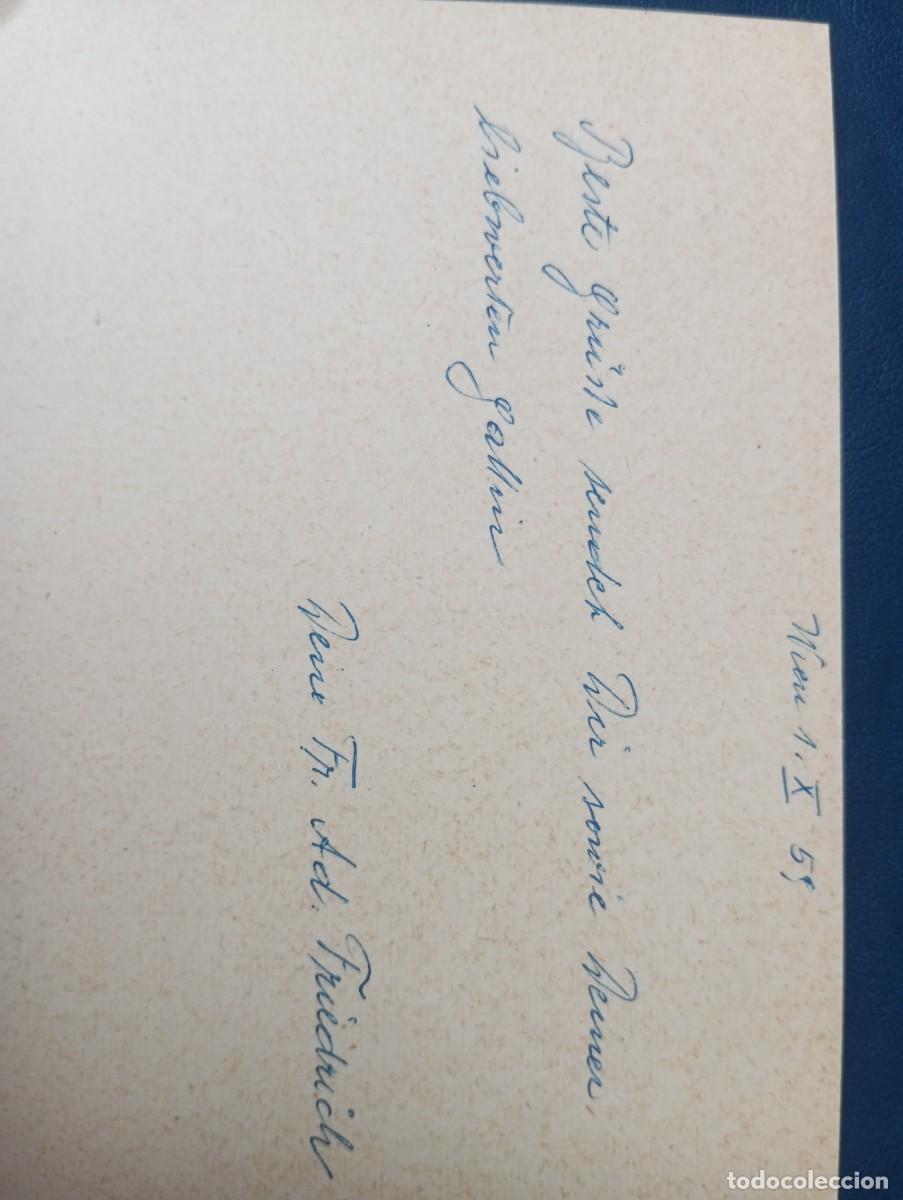 Wien 1. X 59
Beste Grüsse sendet Dir sowie Deiner
liebwerten Gattin
Deine Fr. Ad. Friedrich
todocoleccion